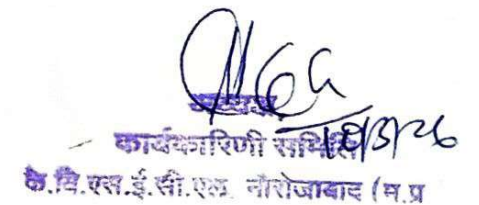 अध्यक्ष
कार्यकारिणी समिति
के.वि.एस.ई.सी.एल. नौरोजाबाद (म.प्र